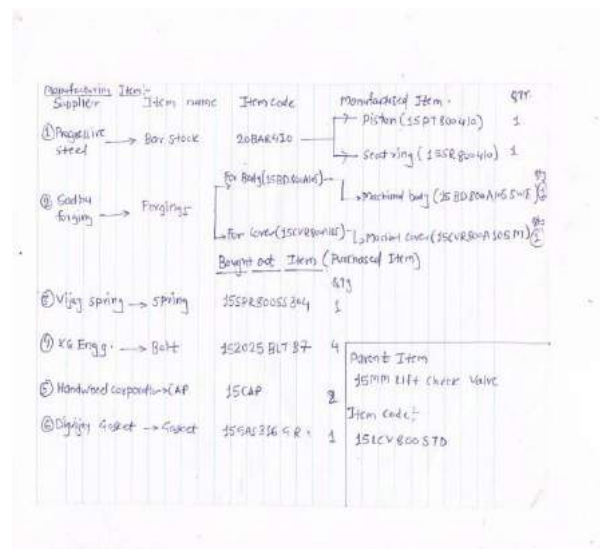 Manufacturing Item:-
Supplier Item name Item code Manufactured Item. QTY.
① Progressive steel → Bar stock 20BAR410 → Piston (15PT800410) 1
→ Seat ring (15SR800410) 1
② Sadhu forging → Forgings → For Body (15BD800A105) → Machined body (15BD800A105SWE) Qty 1
→ For Cover (15CVR800A105) → Machined Cover (15CVR800A105M) Qty 1
Bought out Item (Purchased Item)
QTY
③ Vijay spring → spring 15SPR800SS304 1
④ KG Engg. → Bolt 152025BLTB7 4
⑤ Hardwired corporation → CAP 15CAP 2
⑥ Digvijay Gasket → Gasket 15GAS316GR. 1
Parent Item
15MM Lift Check Valve
Item Code:-
15LCV800STD